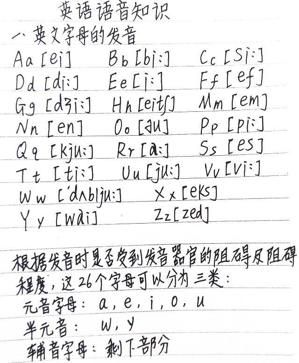 英语语音知识
一、英文字母的发音
Aa [ei] Bb [bi:] Cc [si:]
Dd [di:] Ee [i:] Ff [ef]
Gg [dʒi:] Hh [eitʃ] Mm [em]
Nn [en] Oo [əu] Pp [pi:]
Qq [kju:] Rr [ɑ:] Ss [es]
Tt [ti:] Uu [ju:] Vv [vi:]
Ww ['dʌblju:] Xx [eks]
Yy [wai] Zz [zed]
根据发音时是否受到发音器官的阻碍及阻碍
程度，这26个字母可以分为三类：
元音字母：a, e, i, o, u
半元音：w, y
辅音字母：剩下部分